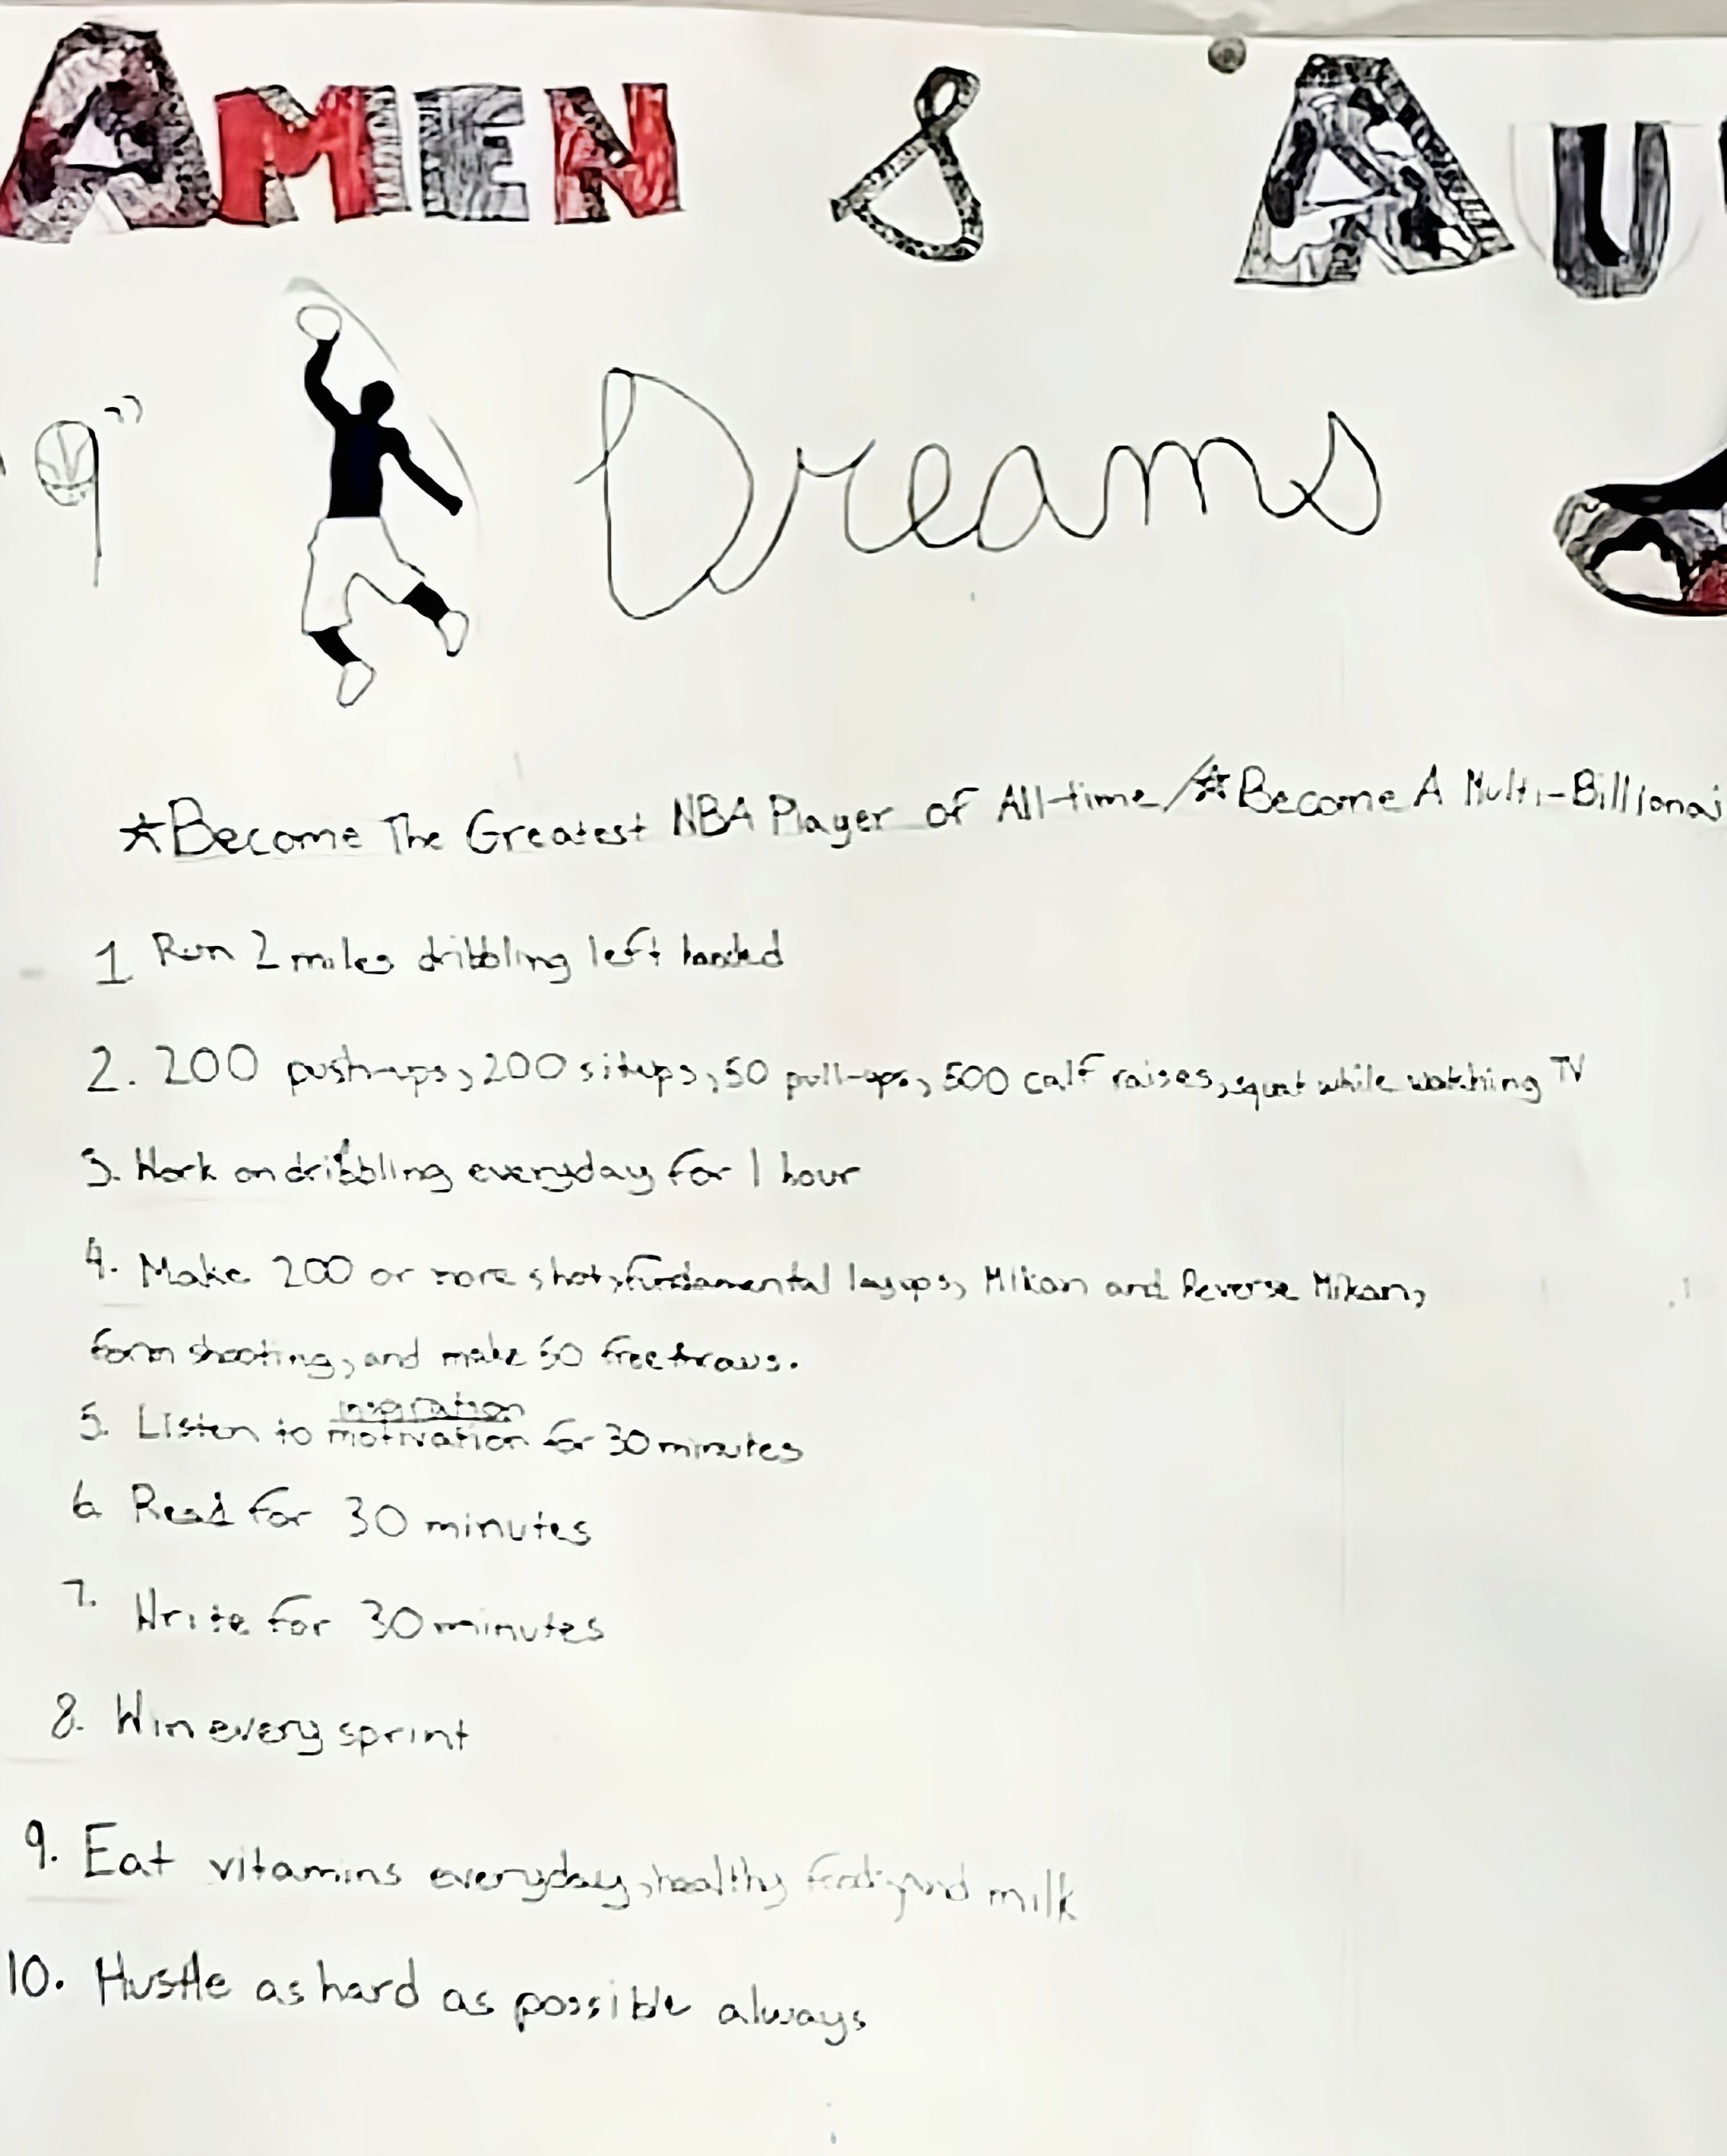 AMEN & AU
9"
Dreams
☆Become The Greatest NBA Player of All-time/☆Become A Multi-Billionai
1 Run 2 miles dribbling left handed
2. 200 push-ups, 200 situps, 50 pull-ups, 500 calf raises, squat while watching TV
3. Work on dribbling everyday for 1 hour
4. Make 200 or more shots, fundamental layups, Mikan and Reverse Mikan,
form shooting, and make 50 freethraws.
inspiration
5. Listen to motivation for 30 minutes
6. Read for 30 minutes
7. Write for 30 minutes
8. Win every sprint
9. Eat vitamins everyday, healthy and milk
10. Hustle as hard as possible always